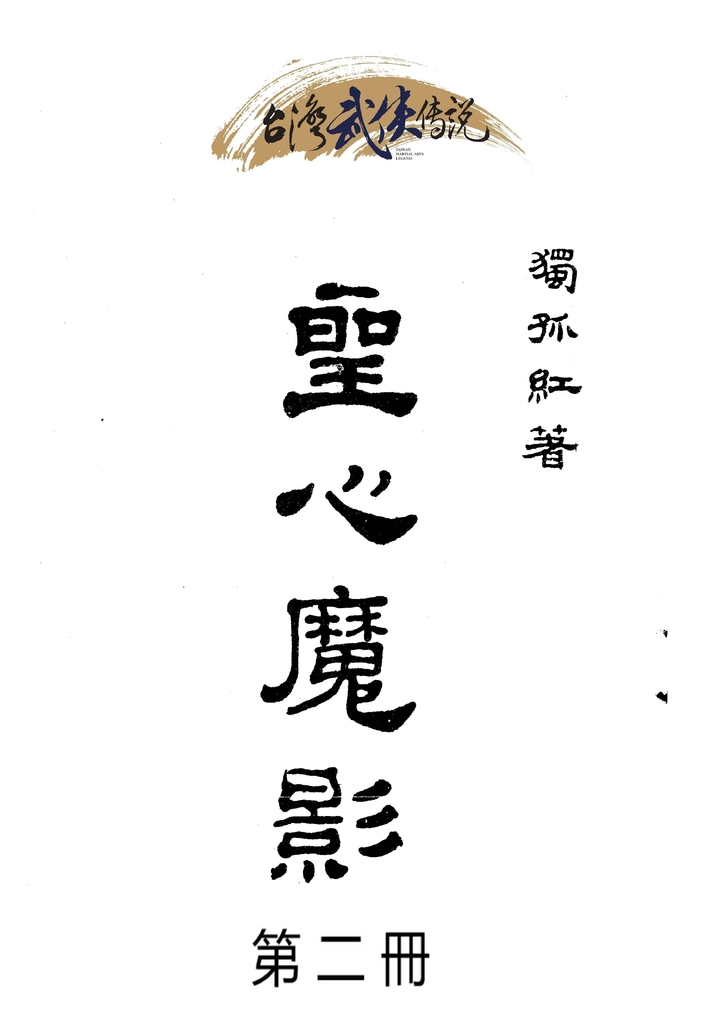 台灣武俠傳説
TAIWAN
MARTIAL ARTS
LEGEND
獨孤紅著
聖心魔影
第二冊